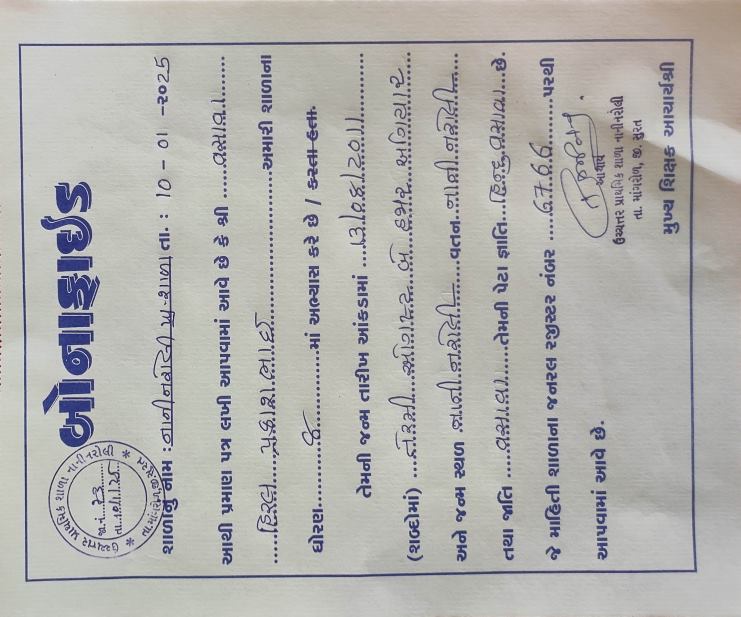 બોનાફાઈડ
ઉચ્ચતર પ્રાથમિક શાળા નાનીનરોલી
જા.નં. ૨૩
તા. ૧૦/૧/૨૫
તા.માંગરોળ,જી.સુરત
શાળાનું નામ : નાનીનરોલી પ્રા.શાળા તા. : 10 - 01 - ૨૦૨5
આથી પ્રમાણ પત્ર લખી આપવામાં આવે છે કે શ્રી .....વસાવા.........
.....હિરલ.....પ્રકાશભાઈ.....................અમારી શાળાના
ધોરણ.............માં અભ્યાસ કરે છે / કરતા હતા.
તેમની જન્મ તારીખ આંકડામાં ...13/08/2011.........
(શબ્દોમાં) ....તેરમી...ઓગષ્ટ...બે...હજાર...અગિયાર
અને જન્મ સ્થળ નાની નરોલી......વતન..નાની નરોલી......
તથા જાતિ .....વસાવા....તેમની પેટા જ્ઞાતિ...હિન્દુ વસાવા...છે.
જે માહિતી શાળાના જનરલ રજીસ્ટર નંબર ....6766.........પરથી
આપવામાં આવે છે.
આચાર્ય
ઉચ્ચત્તર પ્રાથમિક શાળા નાનીનરોલી
તા. માંગરોળ, જી. સુરત
મુખ્ય શિક્ષક આચાર્યશ્રી